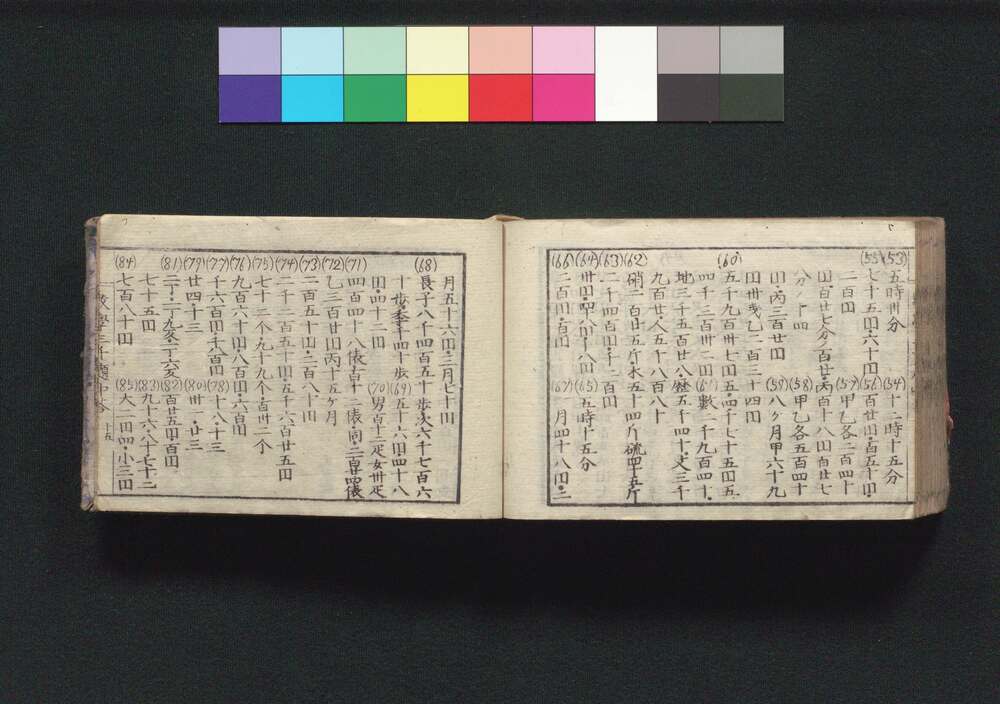 (53)五時卅分 (54)十二時十五分
(55)七十五円·六十円 (56)百廿円·百五十円·
二百円 (57)甲乙各二百四十
円·百廿七分ノ百廿丙百十八円百廿七
分ノ十四 (58)甲乙各五百四十
円·丙三百廿円 (59)八ヶ月甲六十九
円卅戋乙二百三十四円
(60)五千九百卅七円五·四千七十五円五·
四千三百卅二円 (61)數一千九百四十·
地三千五百廿八·歴五千四十·史三千
九百廿·人五千八百八十
(62)硝二百廿五斤水五十四斤硫四十五斤
(63)二千四百円·一千二百円
(64)卅円·四八円·十八円 (65)五時十五分
(66)二百円·百円 (67)一月四十八円·二
月五十六円·三月七十円
(68)長子八千四百五十歩·次六千七百六
十歩·季 千四十歩 (69)五十六円四十八
円·四十二円 (70)男百十二疋女卅疋
(71)四百四十八俵·六百十二俵同·二百 四俵
(72)乙三百廿円丙十五ヶ月
(73)二百五十円·二百八十円
(74)二千二百五十円·五千六百廿五円
(75)七十二个九十九个·百卅二个
(76)九百六十円·八百円·六百円
(77)千六百円·千八百円 (78)十八·十三
(79)廿四·十三 (80)卅一·廿三
(81)二丁·一丁九 (82)百廿五円百円
七十五円 (83)九十六·八十七十二
(84)七百八十円 (85)大二円四小三円
數學三千題中答 十五